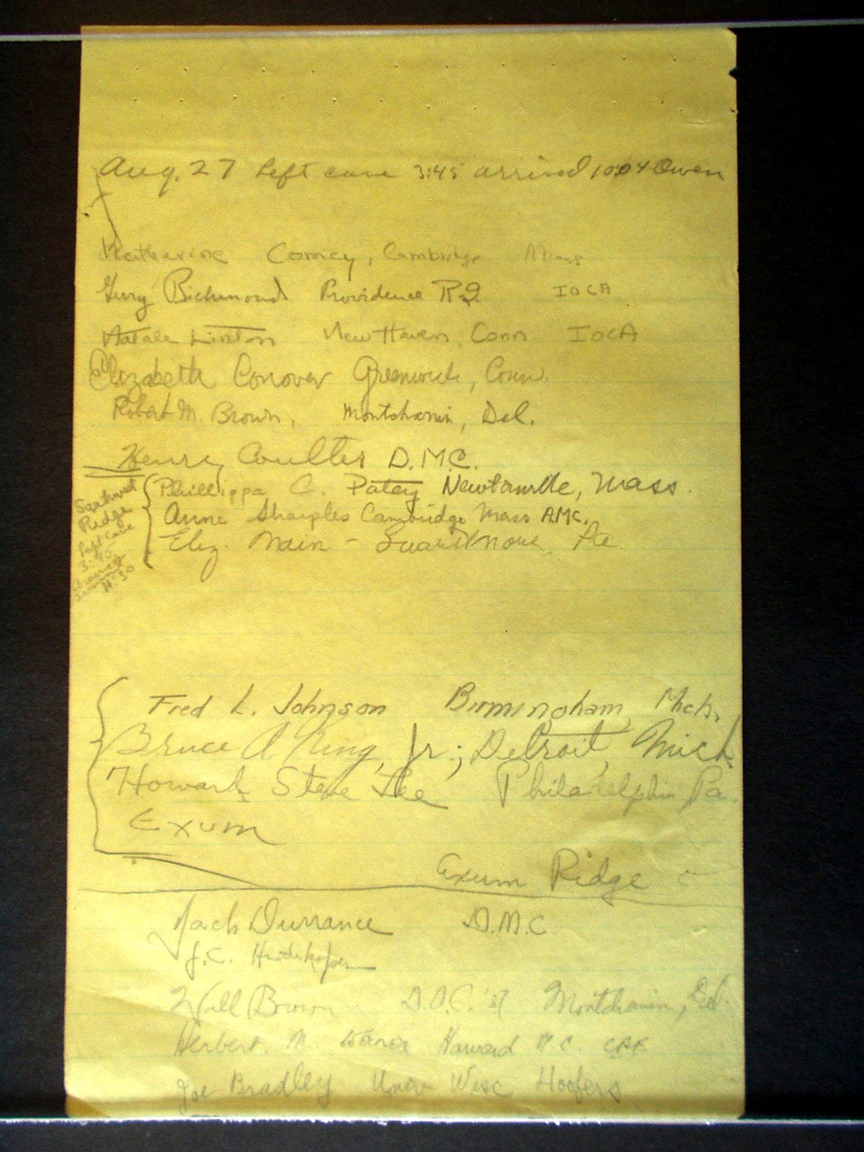 Aug. 27 Left cave 3:45 arrived 10:04 Owen
Katherine Comey, Cambridge Mass
Gerry Richmond Providence R.I. IOCA
Natale Linton New Haven, Conn. IOCA
Elizabeth Conover Greenwich, Conn.
Robert M. Brown, Montchanin, Del.
Henry Coulter D.M.C.
Phillippa C. Patey Newtonville, Mass.
Anne Sharples Cambridge Mass AMC.
Eliz. Main - Swarthmore, Pa
Southwest
Ridge
Left Cave
3:45
11:30
Fred L. Johnson Birmingham, Mich.
Bruce A King, Jr.; Detroit, Mich
Howard Steve Lee Philadelphia Pa.
Exum
Exum Ridge
Jack Durrance D.M.C.
J.C.
Will Brown D.O.C. '37 Montchanin, Del
Herbert M. Harvard M.C.
Joe Bradley Univ Wisc Hoofers